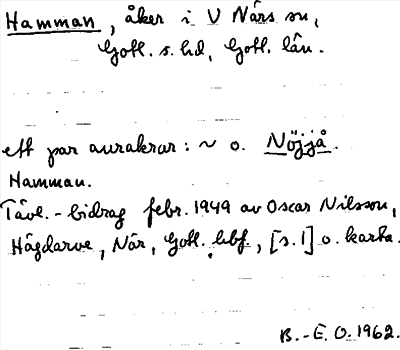 Hamman, åker i V Närs sn,
Gotl. s. hd, Gotl. län.
ett par aurakrar: ~ o. Nöjjå.
Hamman.
Tävl.-bidrag febr. 1949 av Oscar Nilsson,
Hägdarve, När, Gotl. hbf., [s. 1] o. karta.
B.-E. O. 1962.